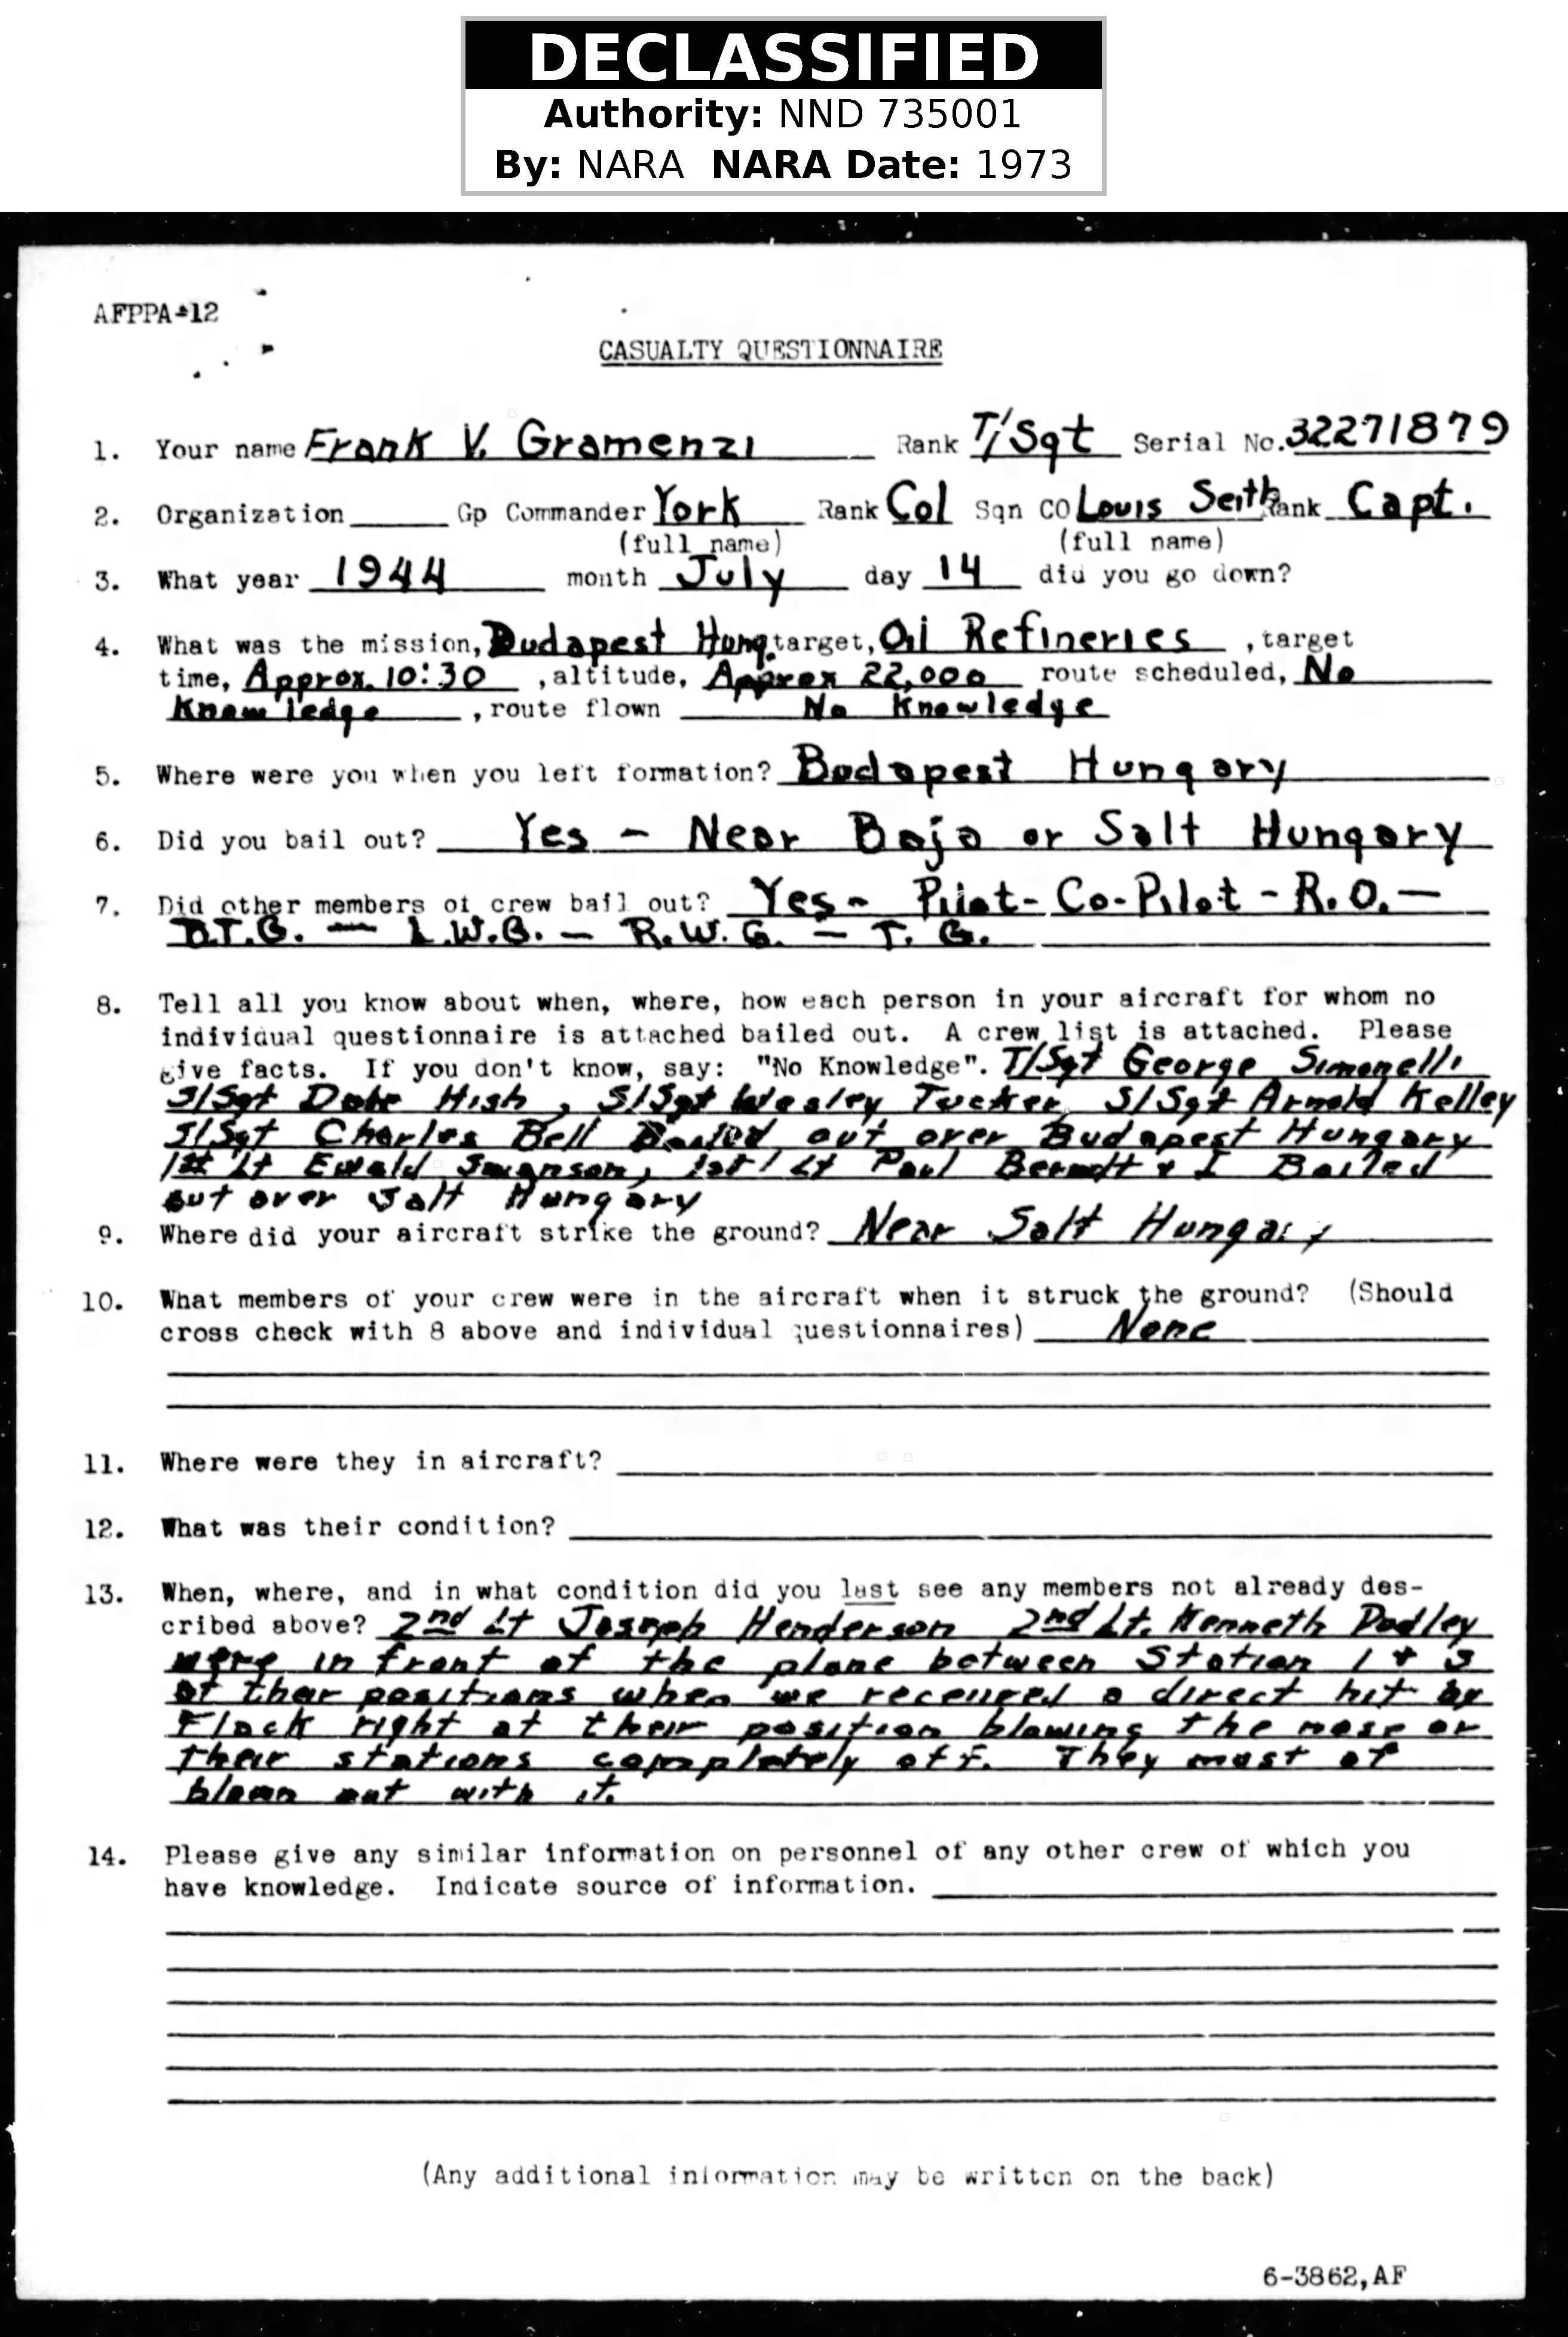 DECLASSIFIED
Authority: NND 735001
By: NARA NARA Date: 1973
AFPPA-12
CASUALTY QUESTIONNAIRE
1. Your name Frank V. Gramenzi Rank T/Sgt Serial No. 32271879
2. Organization Gp Commander York Rank Col Sqn CO Louis Seith Rank Capt.
(full name) (full name)
3. What year 1944 month July day 14 did you go down?
4. What was the mission, Budapest Hung. target, Oil Refineries , target
time, Approx. 10:30 , altitude, Approx 22,000 route scheduled, No
Knowledge , route flown No Knowledge
5. Where were you when you left formation? Budapest Hungary
6. Did you bail out? Yes - Near Baja or Salt Hungary
7. Did other members of crew bail out? Yes - Pilot - Co-Pilot - R.O. -
B.T.G. - L.W.G. - R.W.G. - T.G.
8. Tell all you know about when, where, how each person in your aircraft for whom no
individual questionnaire is attached bailed out. A crew list is attached. Please
give facts. If you don't know, say: "No Knowledge". T/Sgt George Simonelli
S/Sgt Dale High, S/Sgt Wesley Tucker, S/Sgt Arnold Kelley
S/Sgt Charles Bell Bailed out over Budapest Hungary
1st Lt Ewald Swanson, 1st Lt Paul Berndt & I Bailed
out over Salt Hungary
9. Where did your aircraft strike the ground? Near Salt Hungary
10. What members of your crew were in the aircraft when it struck the ground? (Should
cross check with 8 above and individual questionnaires) None
11. Where were they in aircraft?
12. What was their condition?
13. When, where, and in what condition did you last see any members not already des-
cribed above? 2nd Lt Joseph Henderson 2nd Lt. Kenneth Dudley
were in front of the plane between Station 1 & 3
at thar positions when we received a direct hit by
Flack right at their position blowing the nose or
their stations completely off. They must of
blown out with it.
14. Please give any similar information on personnel of any other crew of which you
have knowledge. Indicate source of information.
(Any additional information may be written on the back)
6-3862,AF